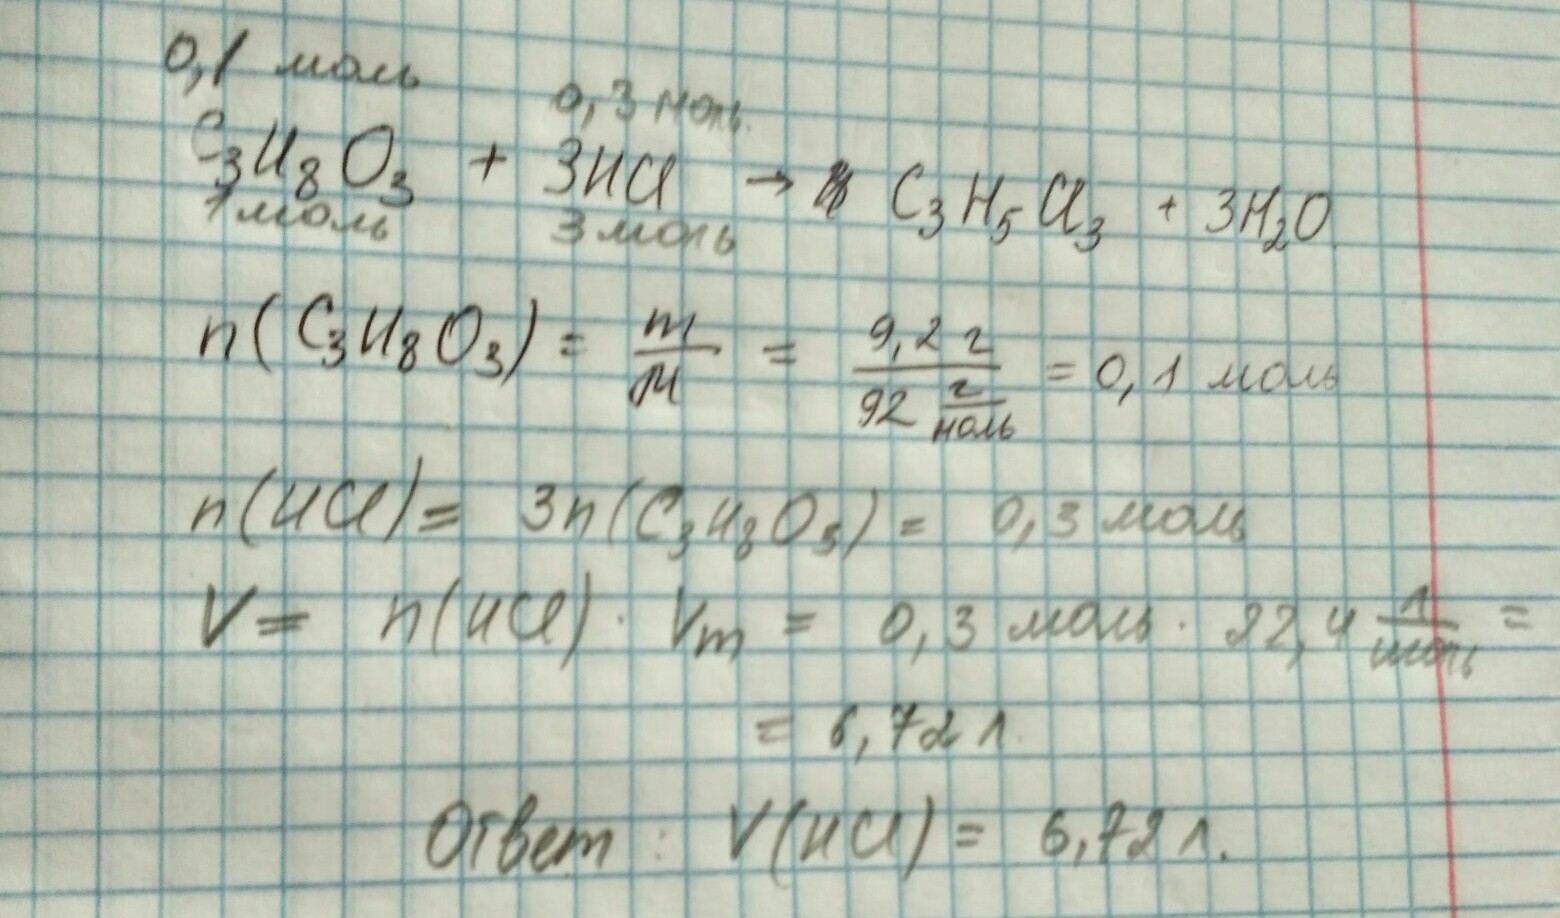 0,1 моль
0,3 моль.
C₃H₈O₃ + 3HCl → C₃H₅Cl₃ + 3H₂O
1 моль 3 моль
n(C₃H₈O₃) = m/M = 9,2 г / 92 г/моль = 0,1 моль
n(HCl) = 3n(C₃H₈O₃) = 0,3 моль
V = n(HCl) · Vm = 0,3 моль · 22,4 л/моль =
= 6,72 л.
Ответ: V(HCl) = 6,72 л.